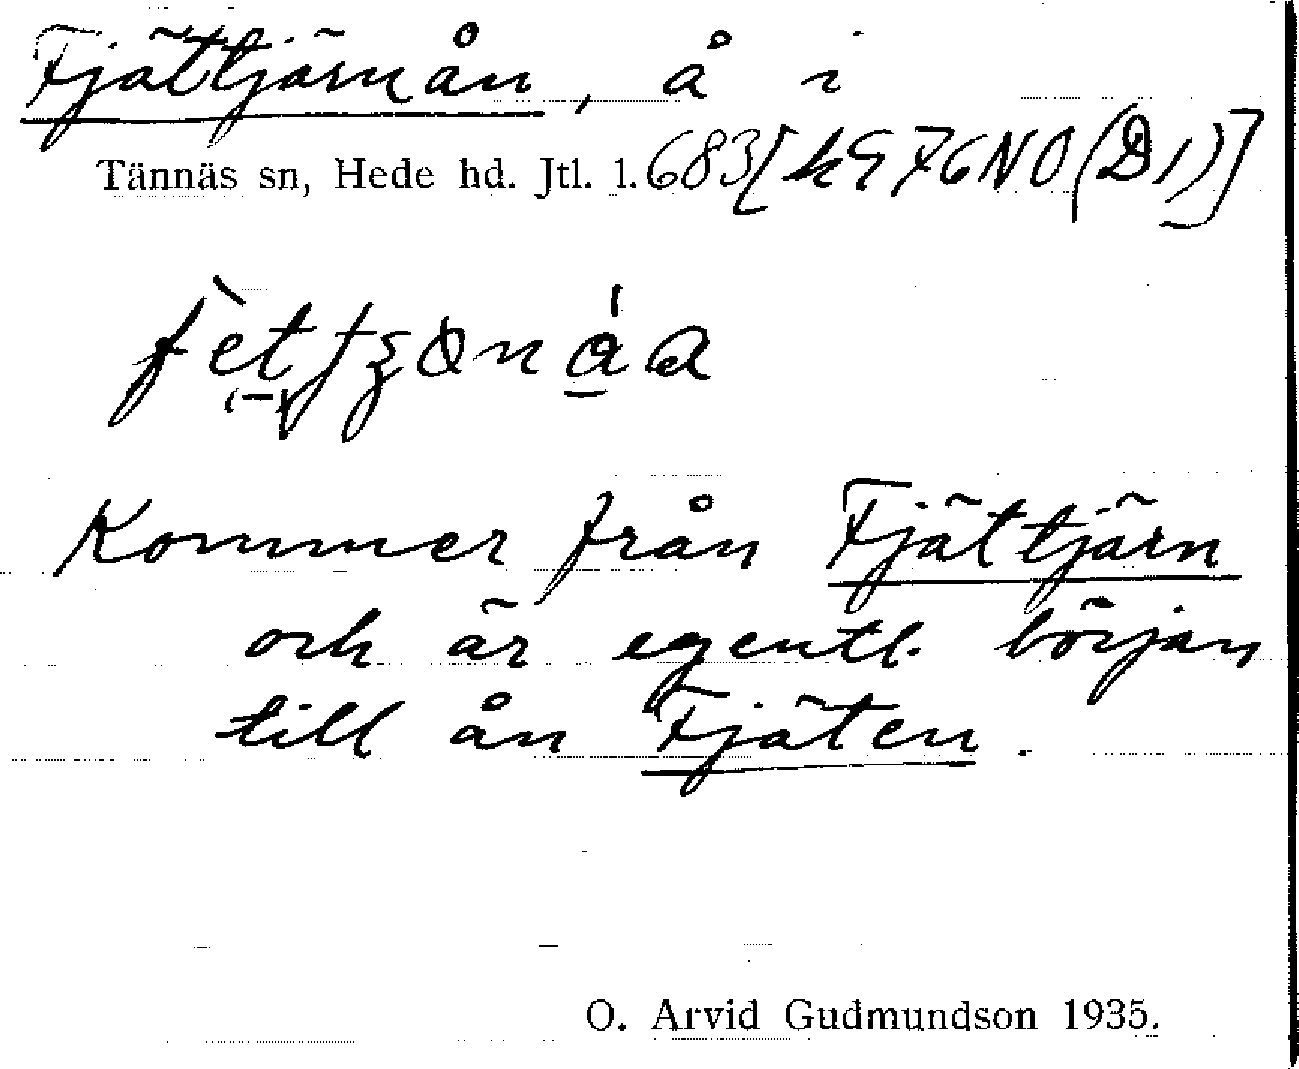 Fjättjärnån, å i
Tännäs sn, Hede hd. Jtl. l. 683
Kommer från Fjättjärn
och är egentl. början
till ån Fjäten.
O. Arvid Gudmundson 1935.